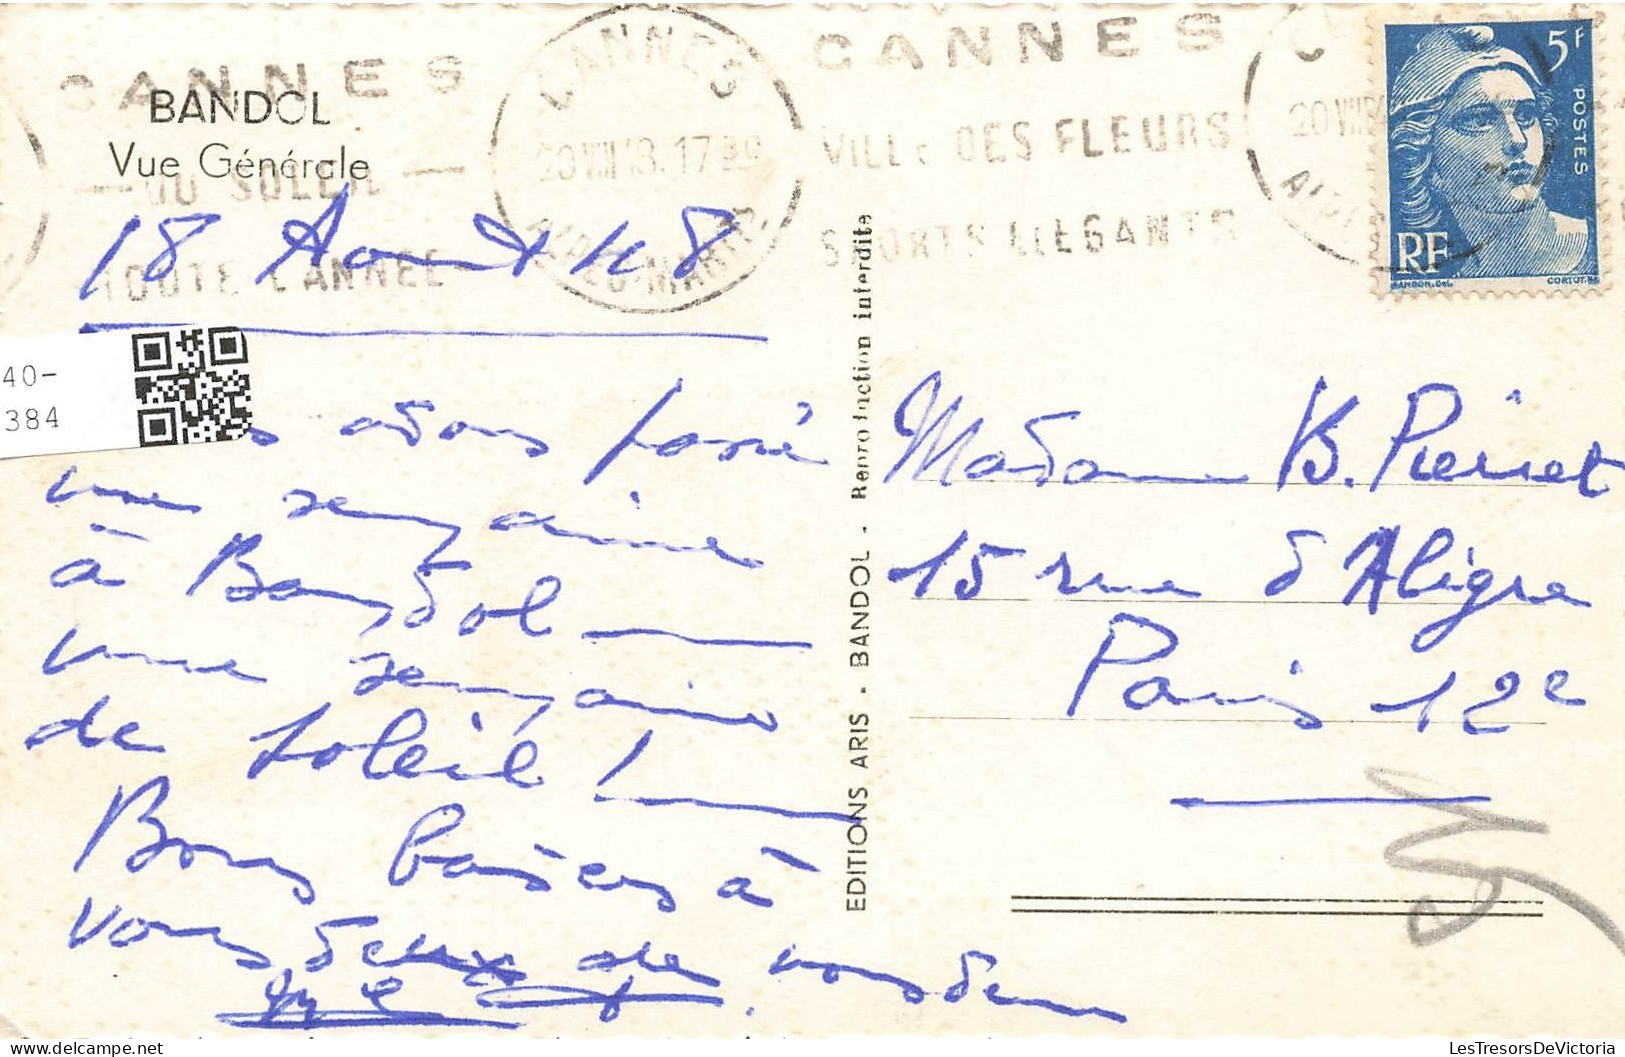 CANNES
BANDOL
Vue Générale
DU SOLEIL
TOUTE L'ANNEE
CANNES
20 VIII 48. 17 30
ALPES-MARMES
CANNES
VILLE DES FLEURS
SPORTS ELEGANTS
5F
POSTES
RF
18 Aout 48
40-
384
avons passé
une semaine
à Bandol
une semaine
de soleil !
Bons baisers à
vous deux de nous deux
EDITIONS ARIS - BANDOL - Reproduction interdite
Madame B. Pierret
15 rue d'Aligre
Paris 12e
LesTresorsDeVictoria